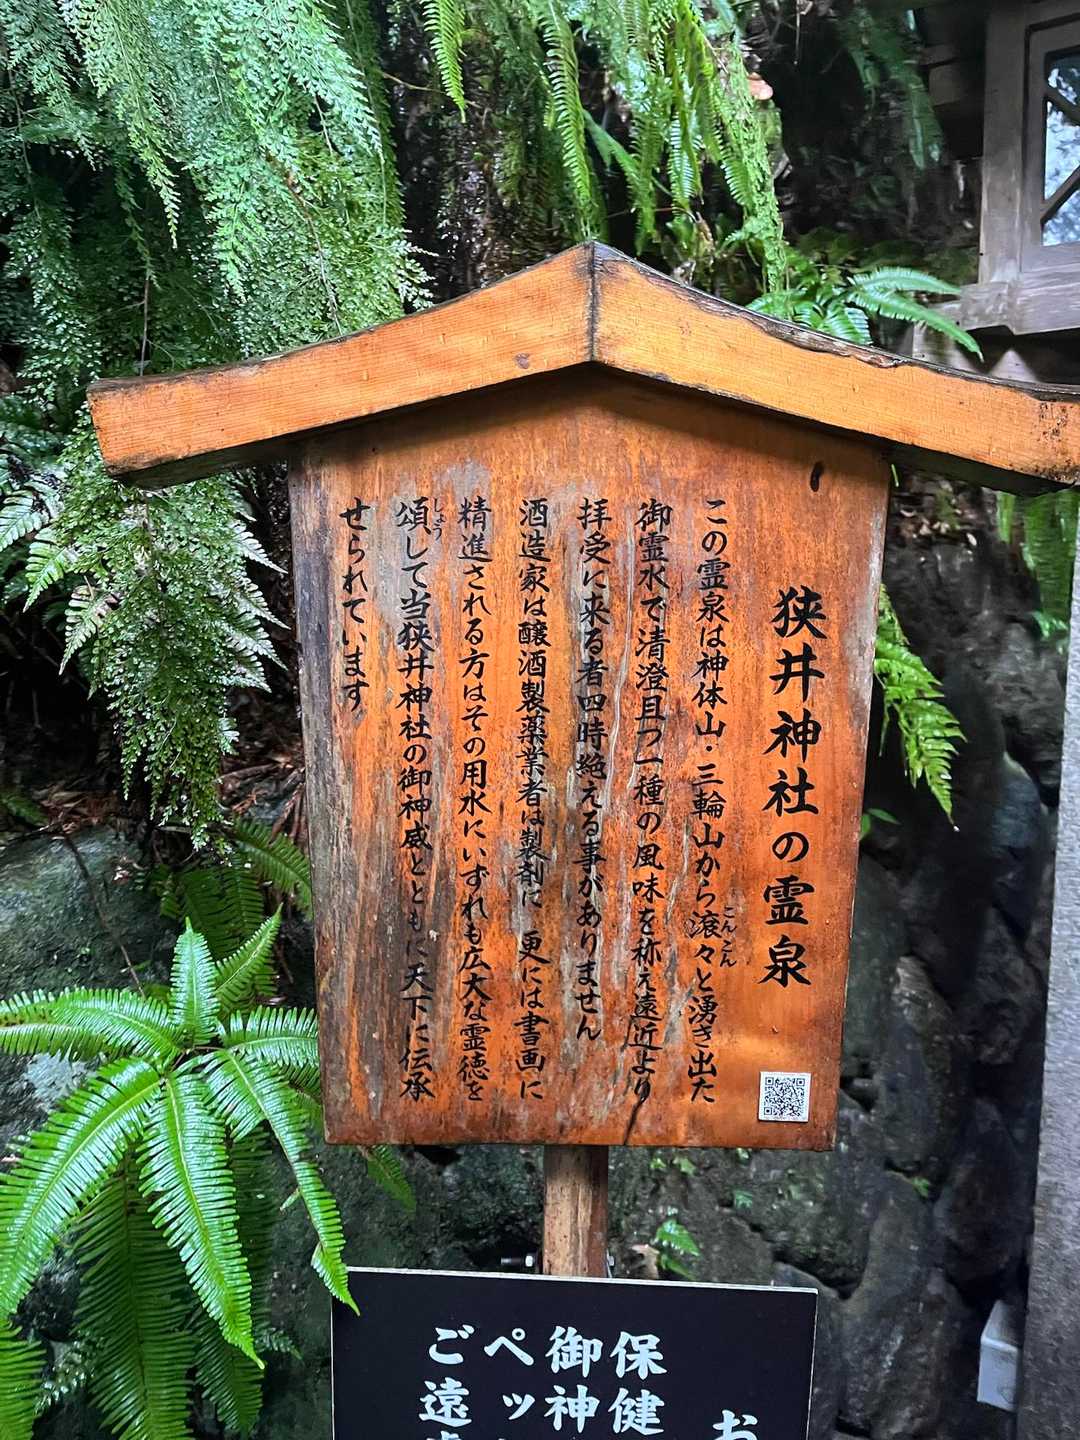 狭井神社の霊泉
この霊泉は神体山・三輪山から滾々と湧き出た
こんこん
御霊水で清澄且つ一種の風味を称え遠近より
拝受に来る者四時絶える事がありません
酒造家は醸酒製薬業者は製剤に 更には書画に
精進される方はその用水にいずれも広大な霊徳を
頌して当狭井神社の御神威とともに天下に伝承
しょう
せられています
お
保健
御神
ペッ
ご遠